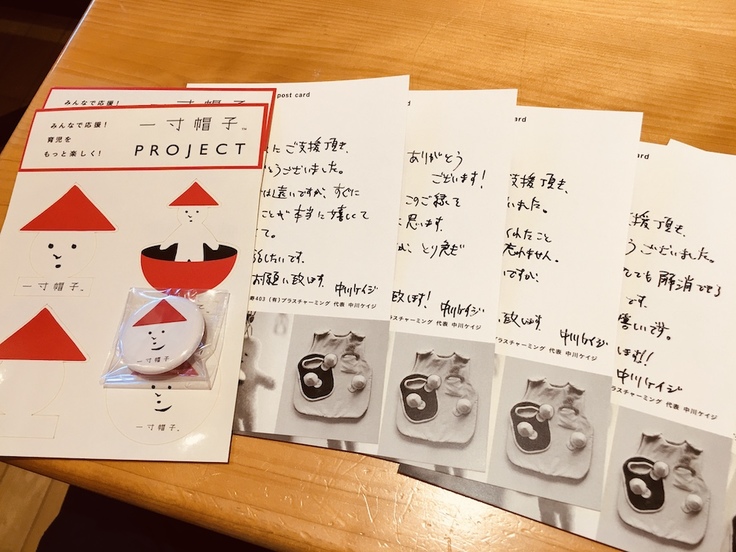 みんなで応援！
一寸帽子
みんなで応援！
育児を
もっと楽しく！
一寸帽子™
PROJECT
一寸帽子™
一寸帽子™
一寸帽子™
post card
にご支援頂き、
うございました。
は遠いですが、すぐに
ことが本当に嬉しくて
て。
したいです。
お願い致します。
中川ケイジ
403 (有)プラスチャーミング 代表 中川ケイジ
card
ありがとう
ございます！
このご縁で
思います。
致します！
中川ケイジ
ラスチャーミング 代表 中川ケイジ
rd
支援頂き、
いました。
くれたこと
忘れません。
ですが、
致します。
中川ケイジ
スチャーミング 代表 中川ケイジ
rd
援頂き、
うございました。
でも解消できる
です。
幸いです。
します!!
中川ケイジ
ラスチャーミング 代表 中川ケイジ